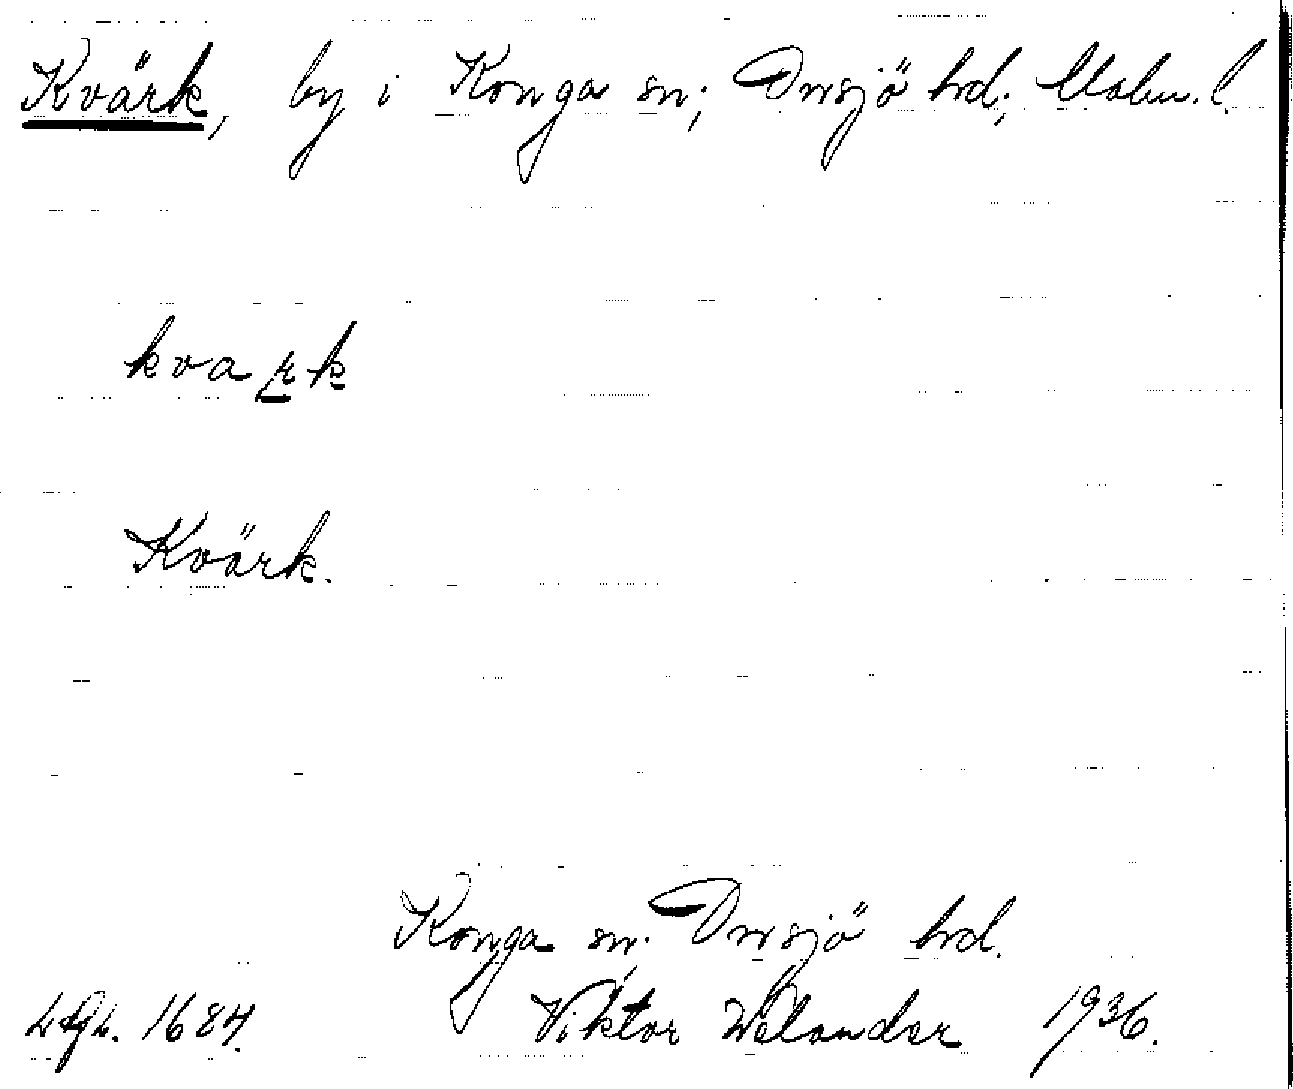 Kvärk, by i Konga sn; Onsjö hd; Malm. l.
kvark
Kvärk.
Konga sn. Onsjö hd.
Lfgh. 1684. Viktor Welander 1936.